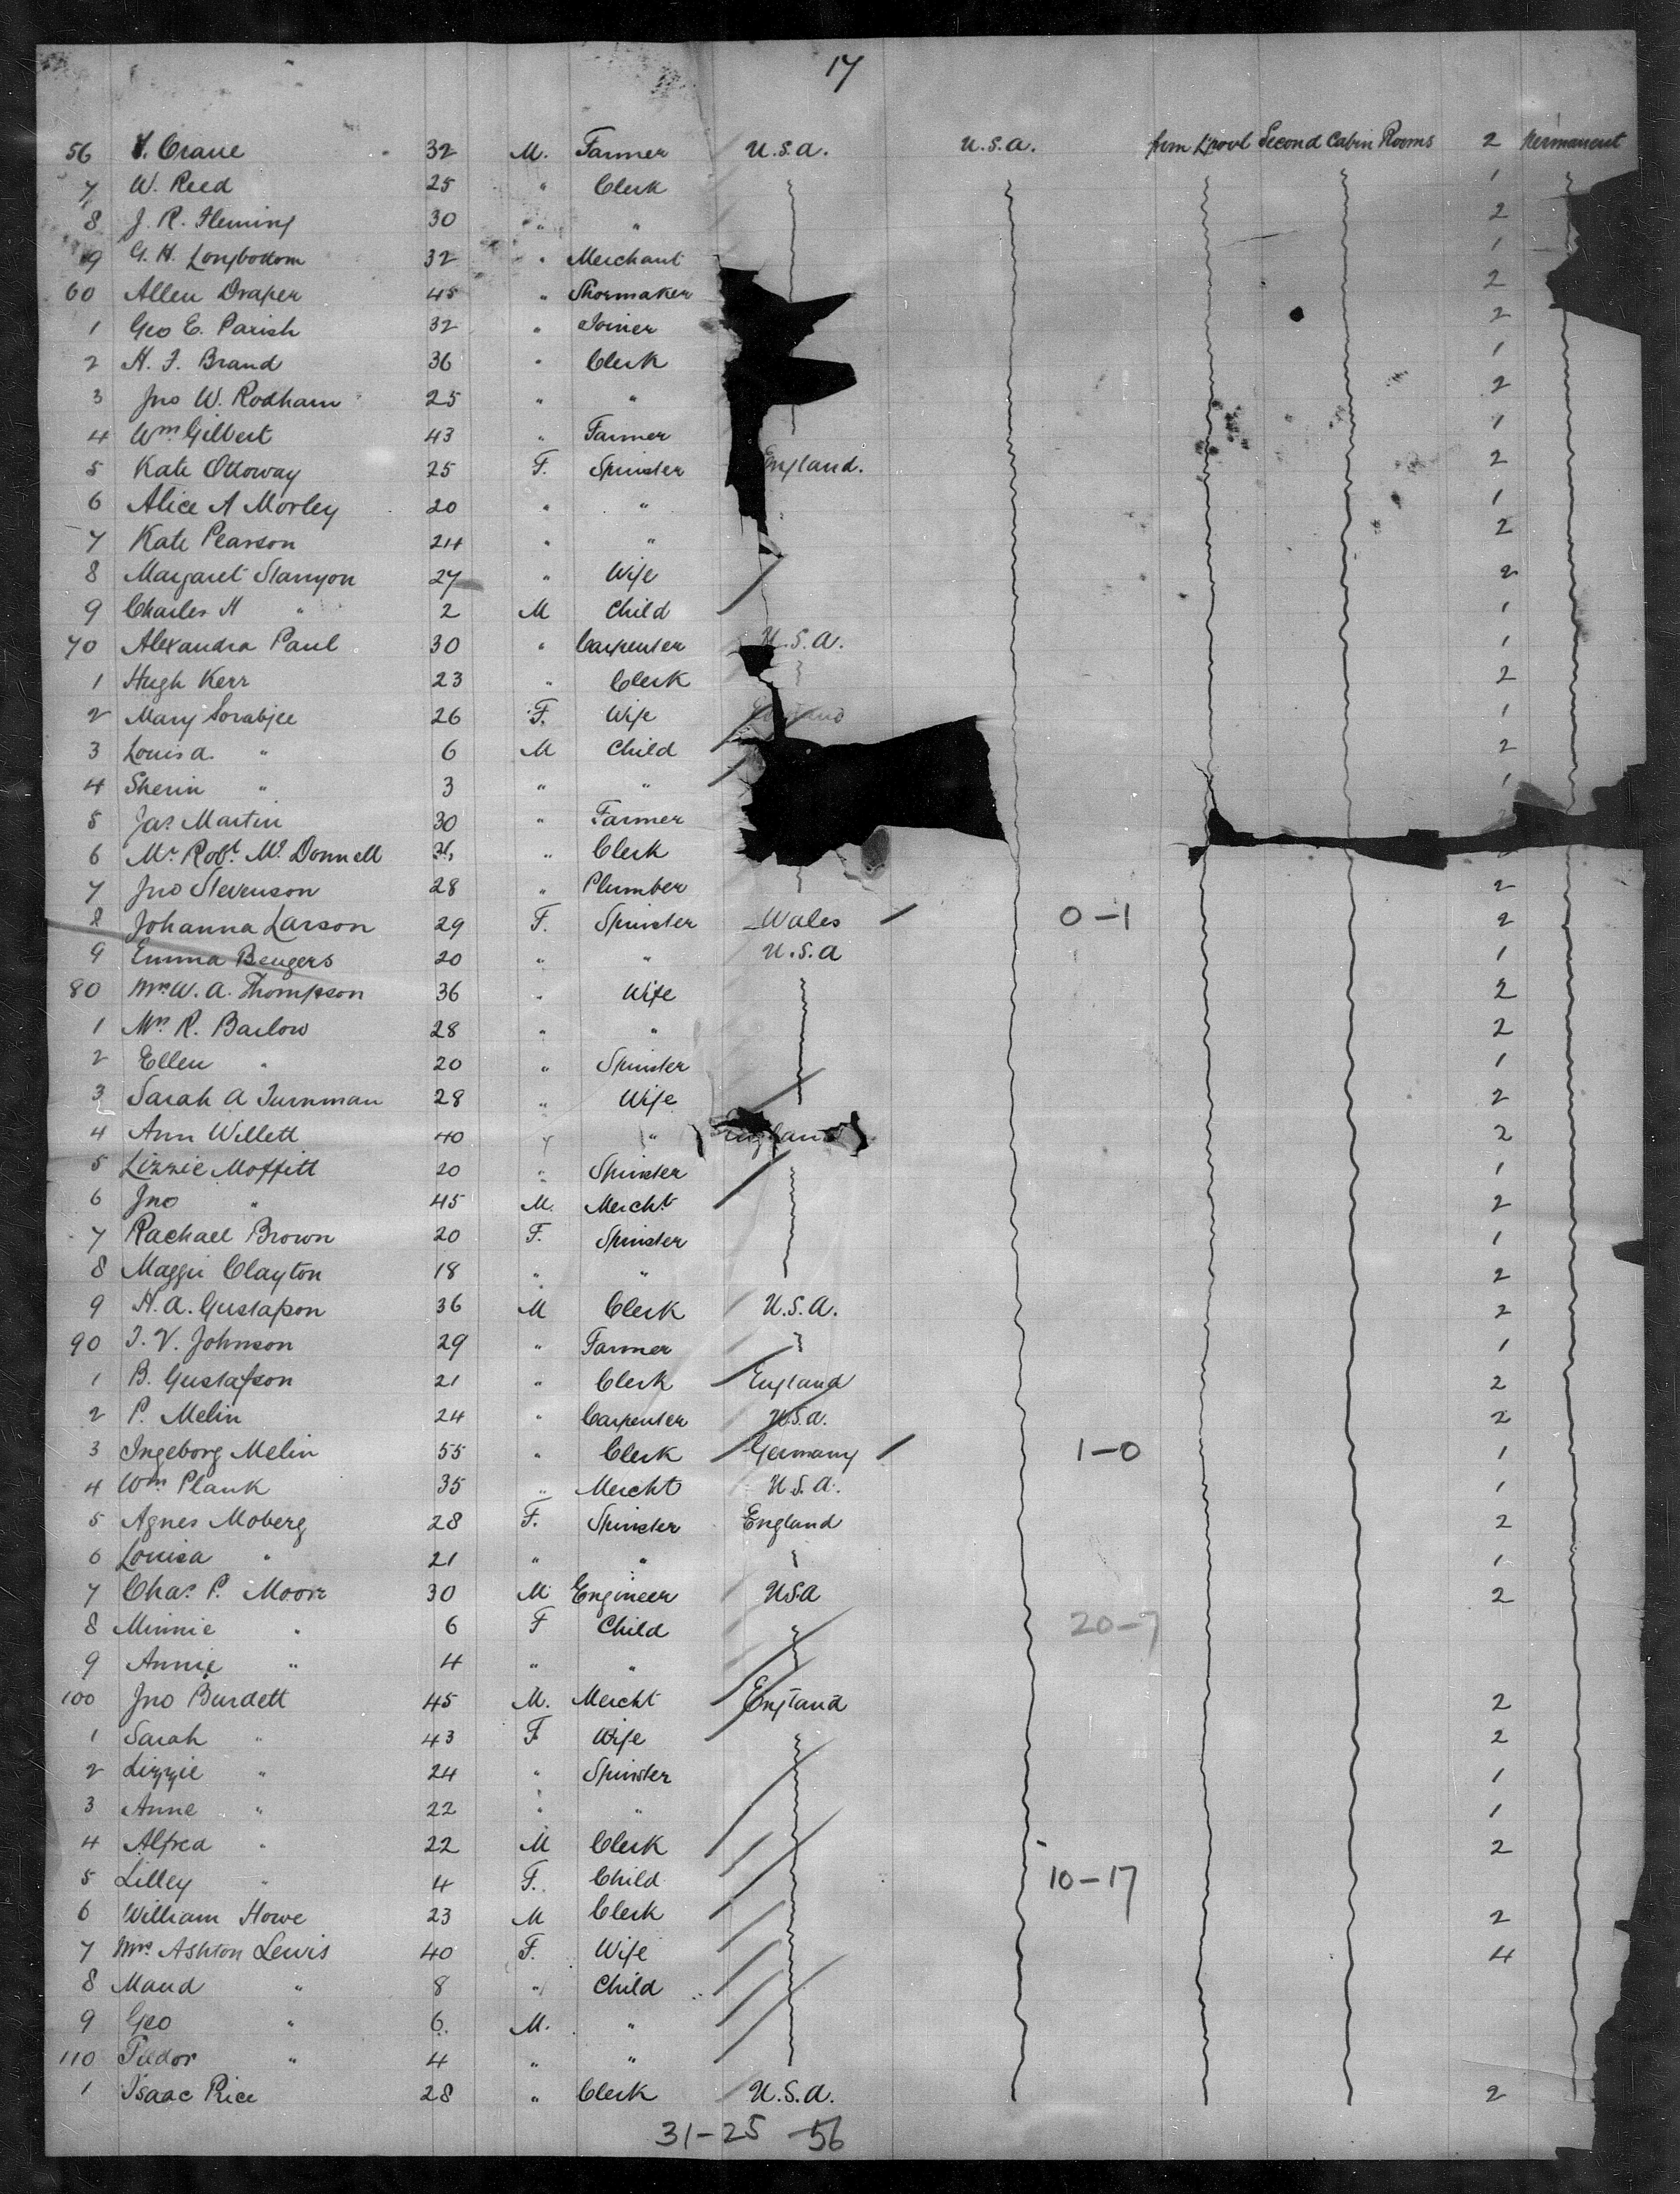 17
56 Crane 32 M. Farmer U.S.A. U.S.A. from Lpool Second Cabin Rooms 2 Permanent
7 W. Reed 25 " Clerk 1
8 J. R. Fleming 30 " " 2
9 G. H. Longbottom 32 " Merchant 1
60 Allen Draper 45 " Shoemaker 2
1 Geo E. Parish 32 " Joiner 2
2 H. F. Brand 36 " Clerk 1
3 Jno W. Rodham 25 " " 2
4 Wm Gilbert 43 " Farmer 1
5 Kate Ottoway 25 F. Spinster England. 2
6 Alice A Morley 20 " " 1
7 Kate Pearson 24 " " 2
8 Margaret Stanyon 27 " Wife 2
9 Charles H " 2 M Child 1
70 Alexandra Paul 30 " Carpenter U.S.A. 1
1 Hugh Kerr 23 " Clerk 2
2 Mary Sorabjee 26 F. Wife England 1
3 Louisa " 6 M Child 2
4 Sherin " 3 " " 1
5 Jas Martin 30 " Farmer
6 Mr Robt Mc Donnell " Clerk
7 Jno Stevenson 28 " Plumber 2
8 Johanna Larson 29 F. Spinster Wales 0-1 2
9 Emma Bengers 20 " " U.S.A 1
80 Mrs W. A. Thompson 36 " Wife 2
1 Mrs R. Barlow 28 " " 2
2 Ellen " 20 " Spinster 1
3 Sarah A Turnman 28 " Wife 2
4 Ann Willett 40 " " England 2
5 Lizzie Moffitt 20 " Spinster 1
6 Jno " 45 M. Mercht 2
7 Rachael Brown 20 F. Spinster 1
8 Maggie Clayton 18 " " 2
9 H. A. Gustafson 36 M Clerk U.S.A. 2
90 J. V. Johnson 29 " Farmer 1
1 B. Gustafson 21 " Clerk England 2
2 P. Melin 24 " Carpenter U.S.A. 2
3 Ingeborg Melin 55 " Clerk Germany 1-0 1
4 Wm Plank 35 " Mercht U.S.A. 1
5 Agnes Moberg 28 F. Spinster England 2
6 Louisa " 21 " " 1
7 Chas P. Moore 30 M Engineer USA 2
8 Minnie " 6 F Child 20-7
9 Annie " 4 " "
100 Jno Burdett 45 M. Mercht England 2
1 Sarah " 43 F Wife 2
2 Lizzie " 24 " Spinster 1
3 Anne " 22 " " 1
4 Alfred " 22 M Clerk 2
5 Lilley " 4 F. Child 10-17
6 William Howe 23 M Clerk 2
7 Mrs Ashton Lewis 40 F. Wife 4
8 Maud " 8 " Child
9 Geo " 6 M. "
110 " 4 " "
1 Isaac Rice 28 " Clerk U.S.A. 2
31-25 -56